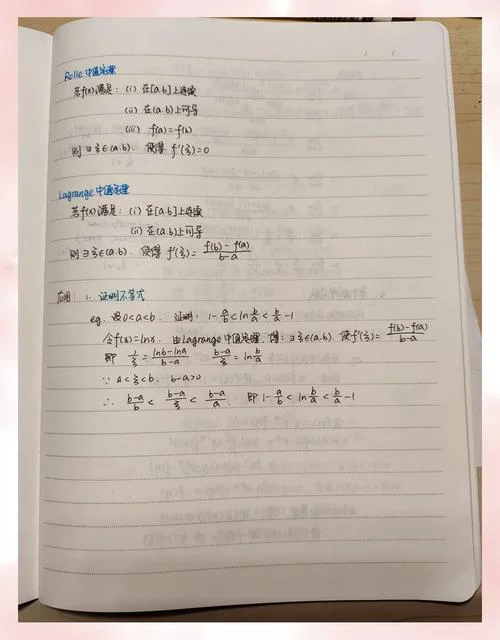 Rolle 中值定理
若f(x)满足: (i) 在[a.b]上连续
(ii) 在(a.b)上可导
(iii) f(a)=f(b)
则 ∃ξ∈(a.b). 使得 f'(ξ)=0
Lagrange 中值定理
若f(x)满足: (i) 在[a.b]上连续
(ii) 在(a.b)上可导
则 ∃ξ∈(a.b). 使得 f'(ξ)= \frac{f(b)-f(a)}{b-a}
应用: 1. 证明不等式
eg. 设0<a<b. 证明: 1-\frac{a}{b}<ln\frac{b}{a}<\frac{b}{a}-1
令f(x)=lnx. 由Lagrange中值定理. 得: ∃ξ∈(a.b). 使f'(ξ)=\frac{f(b)-f(a)}{b-a}
即 \frac{1}{ξ}=\frac{lnb-lna}{b-a} \frac{b-a}{ξ}=ln\frac{b}{a}
∵ a<ξ<b. b-a>0
∴ \frac{b-a}{b}<\frac{b-a}{ξ}<\frac{b-a}{a}. 即 1-\frac{a}{b}<ln\frac{b}{a}<\frac{b}{a}-1